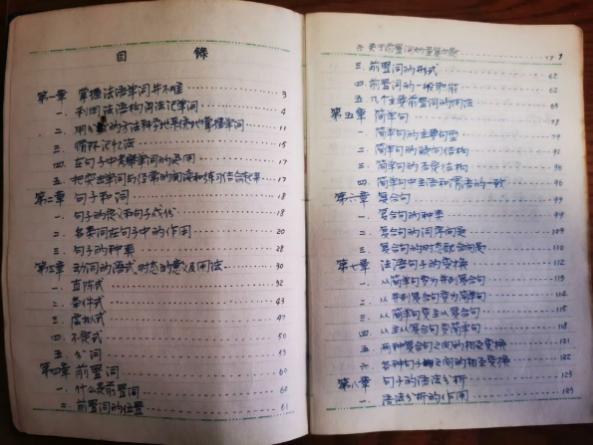 目 录
第一章 掌握法语单词并不难 3
一. 利用法语构词法记单词 4
二. 用 的方法科学地果使地掌握单词 11
三. 循环记忆法 15
四. 在句子中掌握单词的运用 17
五. 把突击单词与经常的阅读和练习结合起来 17
第二章 句子和词 18
一. 句子的意义和句子成份 18
二. 各类词在句子中的作用 20
三. 句子的种类 28
第三章 动词的语式时态的意义及用法 30
一. 直陈式 32
二. 条件式 43
三. 虚拟式 47
四. 不定式 50
五. 分词 53
第四章 前置词 60
一. 什么是前置词 60
二. 前置词的位置 61
关于前置词的重复问题
三. 前置词的形式 62
四. 前置词的一般 62
五. 几个主要前置词的用法 63
第五章 简单句
一. 简单句的主要句型
二. 简单句的疑问结构
三. 简单句的否定结构 96
四. 简单句中主语和谓语的一致 96
第六章 复合句 99
一. 复合句的种类 99
二. 复合句的词序问题
三. 复合句的时态配合问题
第七章 法语句子的变换 112
一. 从简单句变为并列复合句 113
二. 从并列复合句变为简单句
三. 从简单句变主从复合句 115
四. 从主从复合句变简单句 118
五. 两种复合句之间的相互变换 121
六. 各种句子之间的相互变换 122
第八章 句子的语法分析 123
一. 语法分析的作用 123